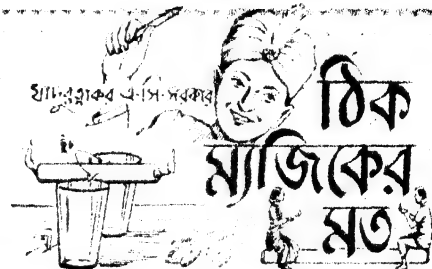 যাদুরত্নাকর এ·সি·সরকার
ঠিক
ম্যাজিকের
মত